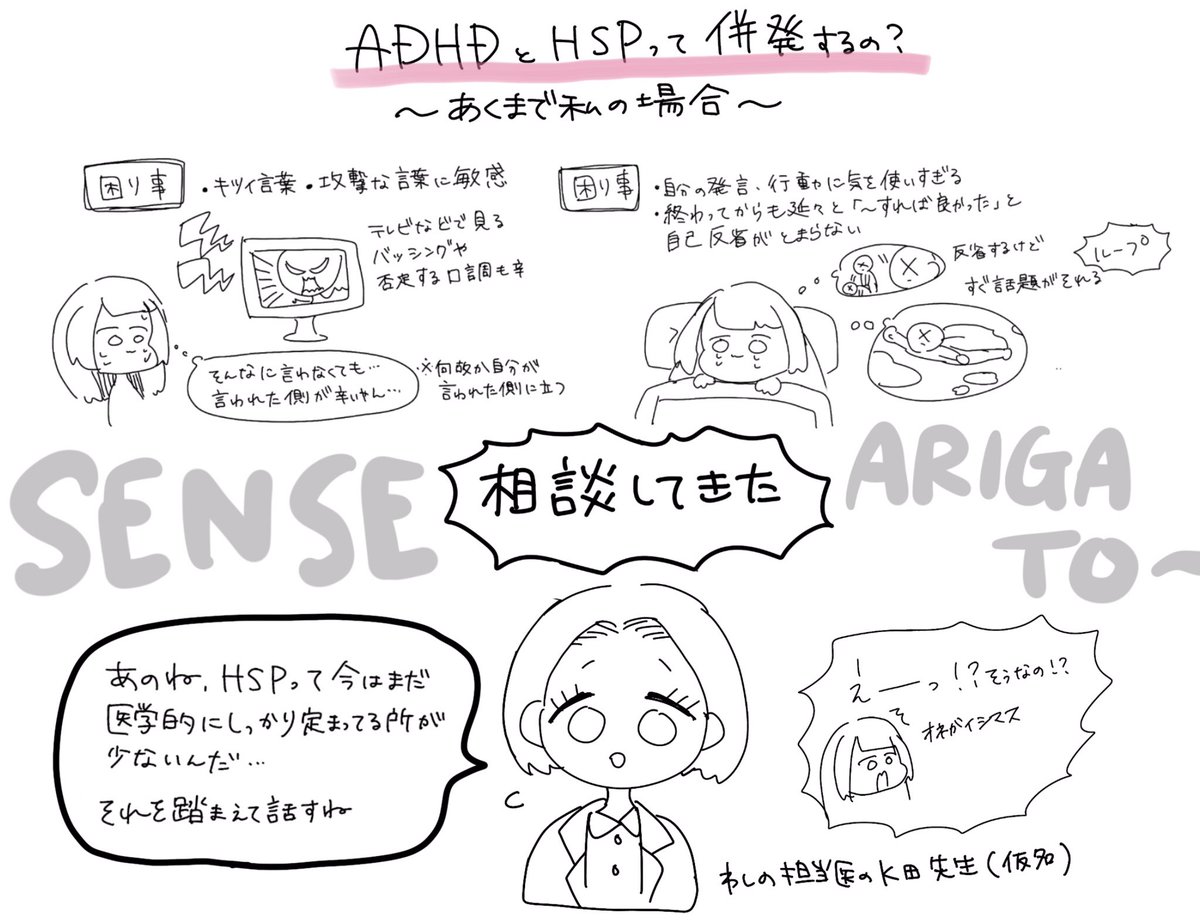 ADHDとHSPって併発するの?
〜あくまで私の場合〜
困り事
・キツイ言葉・攻撃な言葉に敏感
テレビなどで見る
バッシングや
否定する口調も辛
そんなに言わなくても…
言われた側が辛いやん…
※何故か自分が
言われた側に立つ
困り事
・自分の発言、行動に気を使いすぎる
・終わってからも延々と「〜すれば良かった」と
自己反省がとまらない
反省するけど
すぐ話題がそれる
ループ
SENSE
相談してきた
ARIGA
TO〜
あのね、HSPって今はまだ
医学的にしっかり定まってる所が
少ないんだ…
それを踏まえて話すね
えーーっ!?そうなの!?
そ
オネガイシマス
わしの担当医のK田先生(仮名)